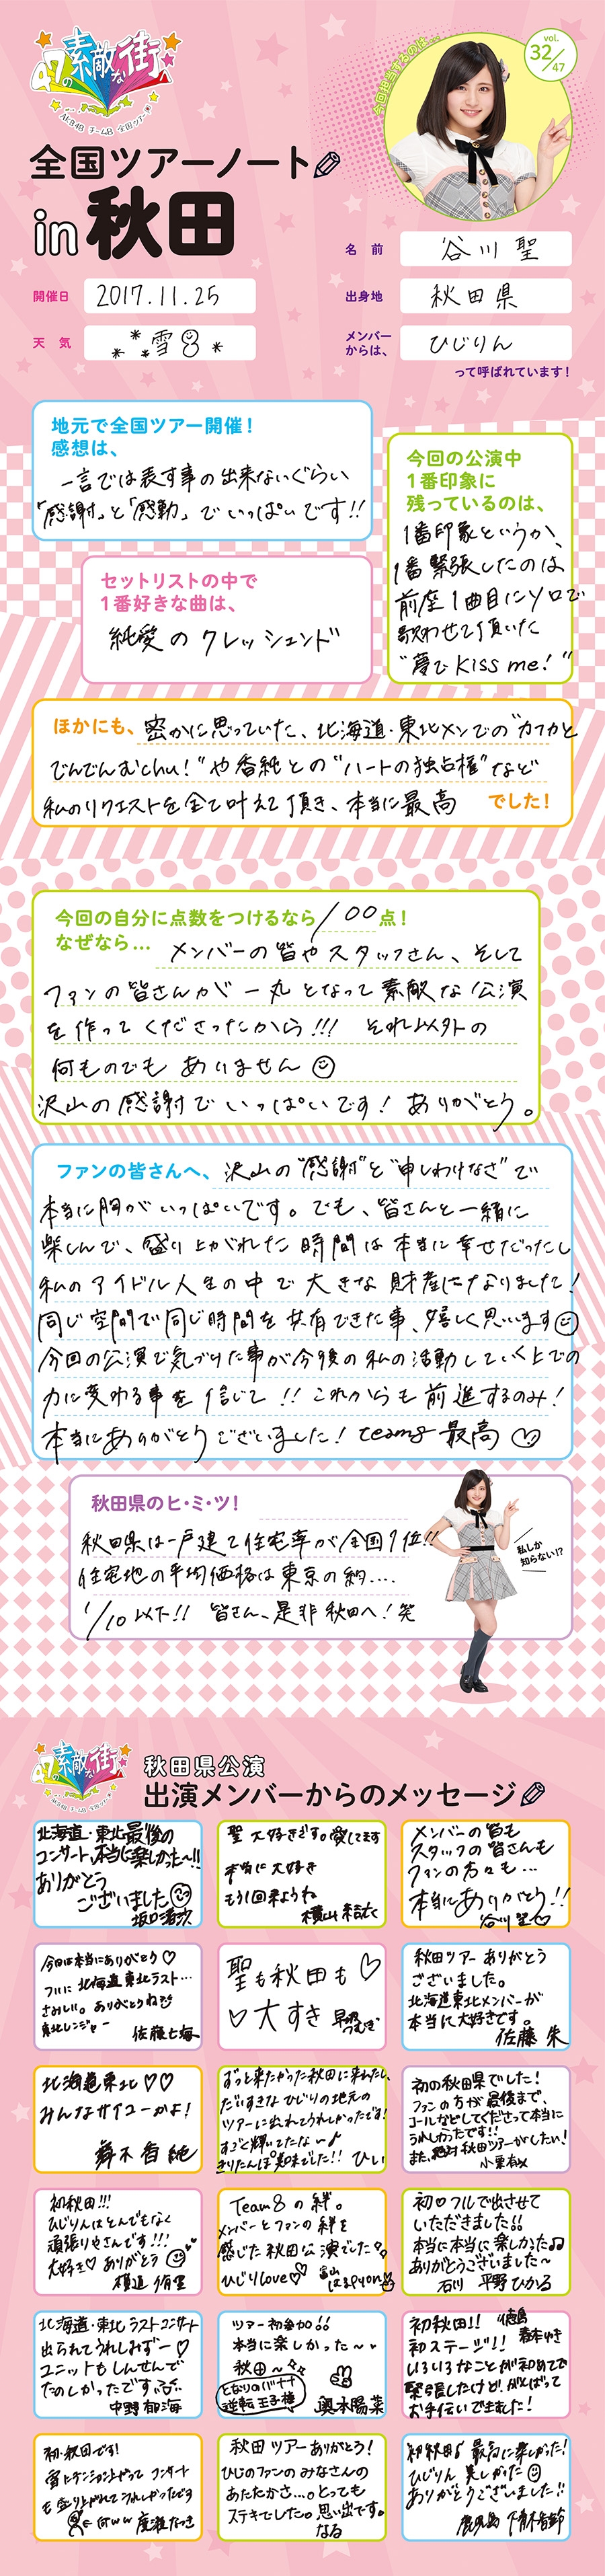 47の素敵な街へ
AKB48 チーム8 全国ツアー
今回担当するのは…
vol.
32/47
全国ツアーノート
in 秋田
名前 谷川聖
開催日 2017.11.25
出身地 秋田県
天気 雪
メンバーからは、 ひじりん
って呼ばれています!
地元で全国ツアー開催!
感想は、
一言では表す事の出来ないぐらい
「感謝」と「感動」でいっぱいです!!
今回の公演中
1番印象に
残っているのは、
1番印象というか、
1番緊張したのは
前座1曲目にソロで
歌わせて頂いた
"夢でKiss me!"
セットリストの中で
1番好きな曲は、
純愛のクレッシェンド
ほかにも、密かに思っていた、北海道・東北メンでの"カフカと
でんでんむchu!"や香純との"ハートの独占権"など
私のリクエストを全て叶えて頂き、本当に最高 でした!
今回の自分に点数をつけるなら100点!
なぜなら… メンバーの皆やスタッフさん、そして
ファンの皆さんが一丸となって素敵な公演
を作ってくださったから!!! それ以外の
何ものでもありません
沢山の感謝でいっぱいです! ありがとう。
ファンの皆さんへ、沢山の"感謝"と"申しわけなさ"で
本当に胸がいっぱいです。でも、皆さんと一緒に
楽しんで、盛り上がれた時間は本当に幸せだったし
私のアイドル人生の中で大きな財産になりました!
同じ空間で同じ時間を共有できた事、嬉しく思います
今回の公演で気づけた事が今後の私の活動していく上での
力に変わる事を信じて!! これからも前進するのみ!
本当にありがとうございました! team8 最高
秋田県のヒ・ミ・ツ!
秋田県は一戸建て住宅率が全国1位!!
住宅地の平均価格は東京の約....
1/10以下!! 皆さん、是非秋田へ!笑
私しか
知らない!?
47の素敵な街へ
秋田県公演
出演メンバーからのメッセージ
北海道・東北最後の
コンサート、本当に楽しかった〜!!
ありがとう
ございました
坂口渚沙
聖 大好きです。愛してます
本当に大好き
もう1回来ようね
横山結衣
メンバーの皆も
スタッフの皆さんも
ファンの方々も…
本当にありがとう!!
谷川聖♡
今日は本当にありがとう♡
フルに北海道東北ラスト…
さみしい。ありがとうね
東北レンジャー
佐藤七海
聖も秋田も♡
♡大すき 早坂つむぎ
秋田ツアーありがとう
ございました。
北海道東北メンバーが
本当に大好きです。
佐藤 朱
北海道東北♡♡
みんなサイコーかよ!
舞木香純
ずっと来たかった秋田に来れたし、
だいすきなひじりの地元の
ツアーに出れてうれしかったです!
すごく輝いてたな〜♪
きりたんぽ美味でした!! ひぃ
初の秋田県でした!
ファンの方が最後まで、
コールなどしてくださって本当に
うれしかったです!!
また、絶対秋田ツアーがしたい!
小栗有以
初秋田!!!
ひじりんはとんでもなく
頑張りやさんです!!!
大好き♡ ありがとう
横道侑里
Team8の絆。
メンバーとファンの絆を
感じた秋田公演でした
ひじりlove♡ 富山 はるpyon
初♡フルで出させて
いただきました!!
本当に本当に楽しかった♫
ありがとうございました〜
石川 平野ひかる
北海道・東北ラストコンサート
出られてうれしみず〜♡
ユニットもしんせんで
たのしかったです
中野郁海
ツアー初参加!!
本当に楽しかった〜
秋田〜
となりのバナナ
逆転王子様
奥本陽菜
初秋田!! 徳島 春本ゆき
初ステージ!!
いろいろなことが初めてで
緊張したけど、がんばって
お手伝いできました!
初・秋田です!
雪にテンション上がって コンサート
も盛り上がれてうれしかったです
←何ww 廣瀬なつき
秋田ツアーありがとう!
ひじのファンのみなさんの
あたたかさ…。とっても
ステキでした。思い出です。
なる
初秋田♪ 最高に楽しかった!
ひじりん 美しかった
ありがとうございました!!
鹿児島 下青木香鈴